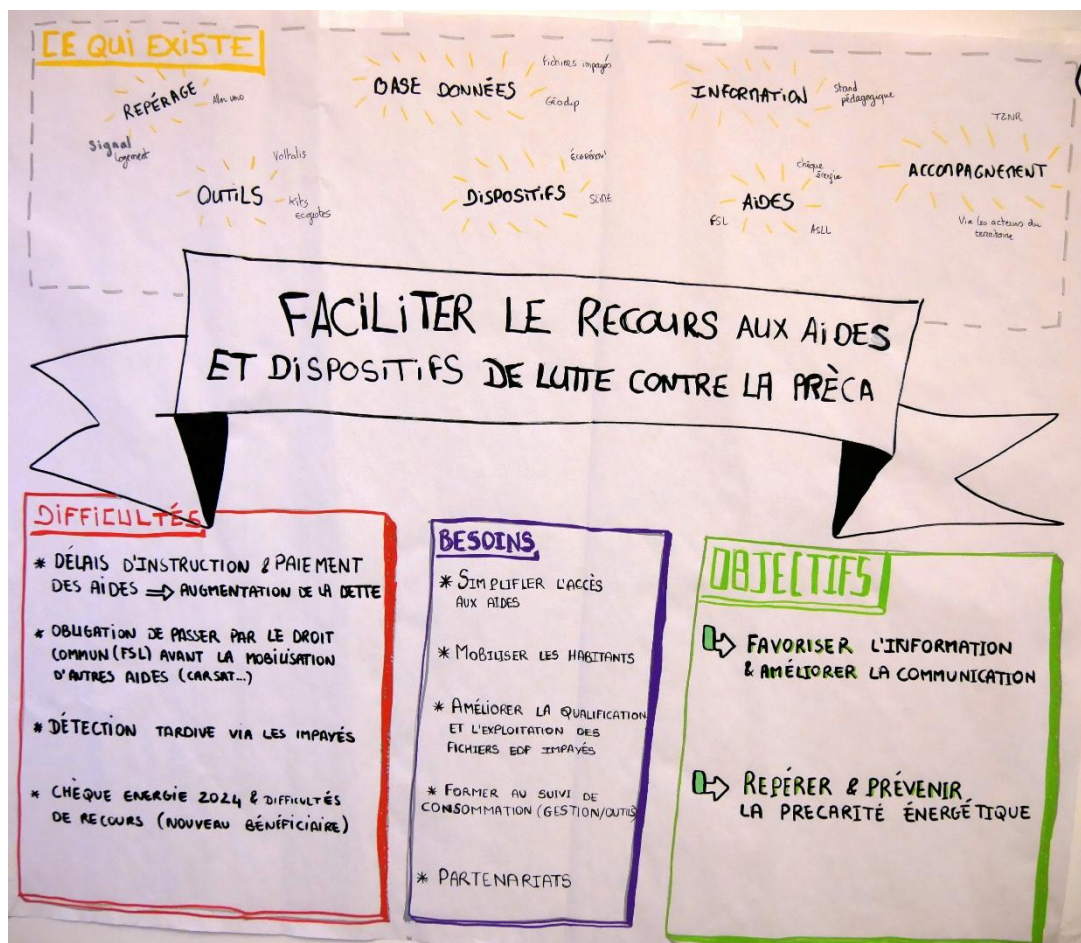 CE QUI EXISTE
REPÉRAGE
Signal
Logement
BASE DONNÉES
Fichiers impayés
Géodip
INFORMATION
Stand
pédagogique
ACCOMPAGNEMENT
TZNR
Via les acteurs du
territoire
OUTILS
Voltalis
Kits
DISPOSITIFS
SLIME
AIDES
chèque
énergie
FSL
ASLL
FACILITER LE RECOURS AUX AIDES
ET DISPOSITIFS DE LUTTE CONTRE LA PRÈCA
DIFFICULTÉS
* DÉLAIS D'INSTRUCTION & PAIEMENT
DES AIDES => AUGMENTATION DE LA DETTE
* OBLIGATION DE PASSER PAR LE DROIT
COMMUN (FSL) AVANT LA MOBILISATION
D'AUTRES AIDES (CARSAT...)
* DÉTECTION TARDIVE VIA LES IMPAYÉS
* CHÈQUE ENERGIE 2024 & DIFFICULTÉS
DE RECOURS (NOUVEAU BÉNÉFICIAIRE)
BESOINS
* SIMPLIFIER L'ACCÈS
AUX AIDES
* MOBILISER LES HABITANTS
* AMÉLIORER LA QUALIFICATION
ET L'EXPLOITATION DES
FICHIERS EDF IMPAYÉS
* FORMER AU SUIVI DE
CONSOMMATION (GESTION/OUTILS)
* PARTENARIATS
OBJECTIFS
FAVORISER L'INFORMATION
& AMÉLIORER LA COMMUNICATION
REPÉRER & PRÉVENIR
LA PRECARITÉ ÉNERGÉTIQUE